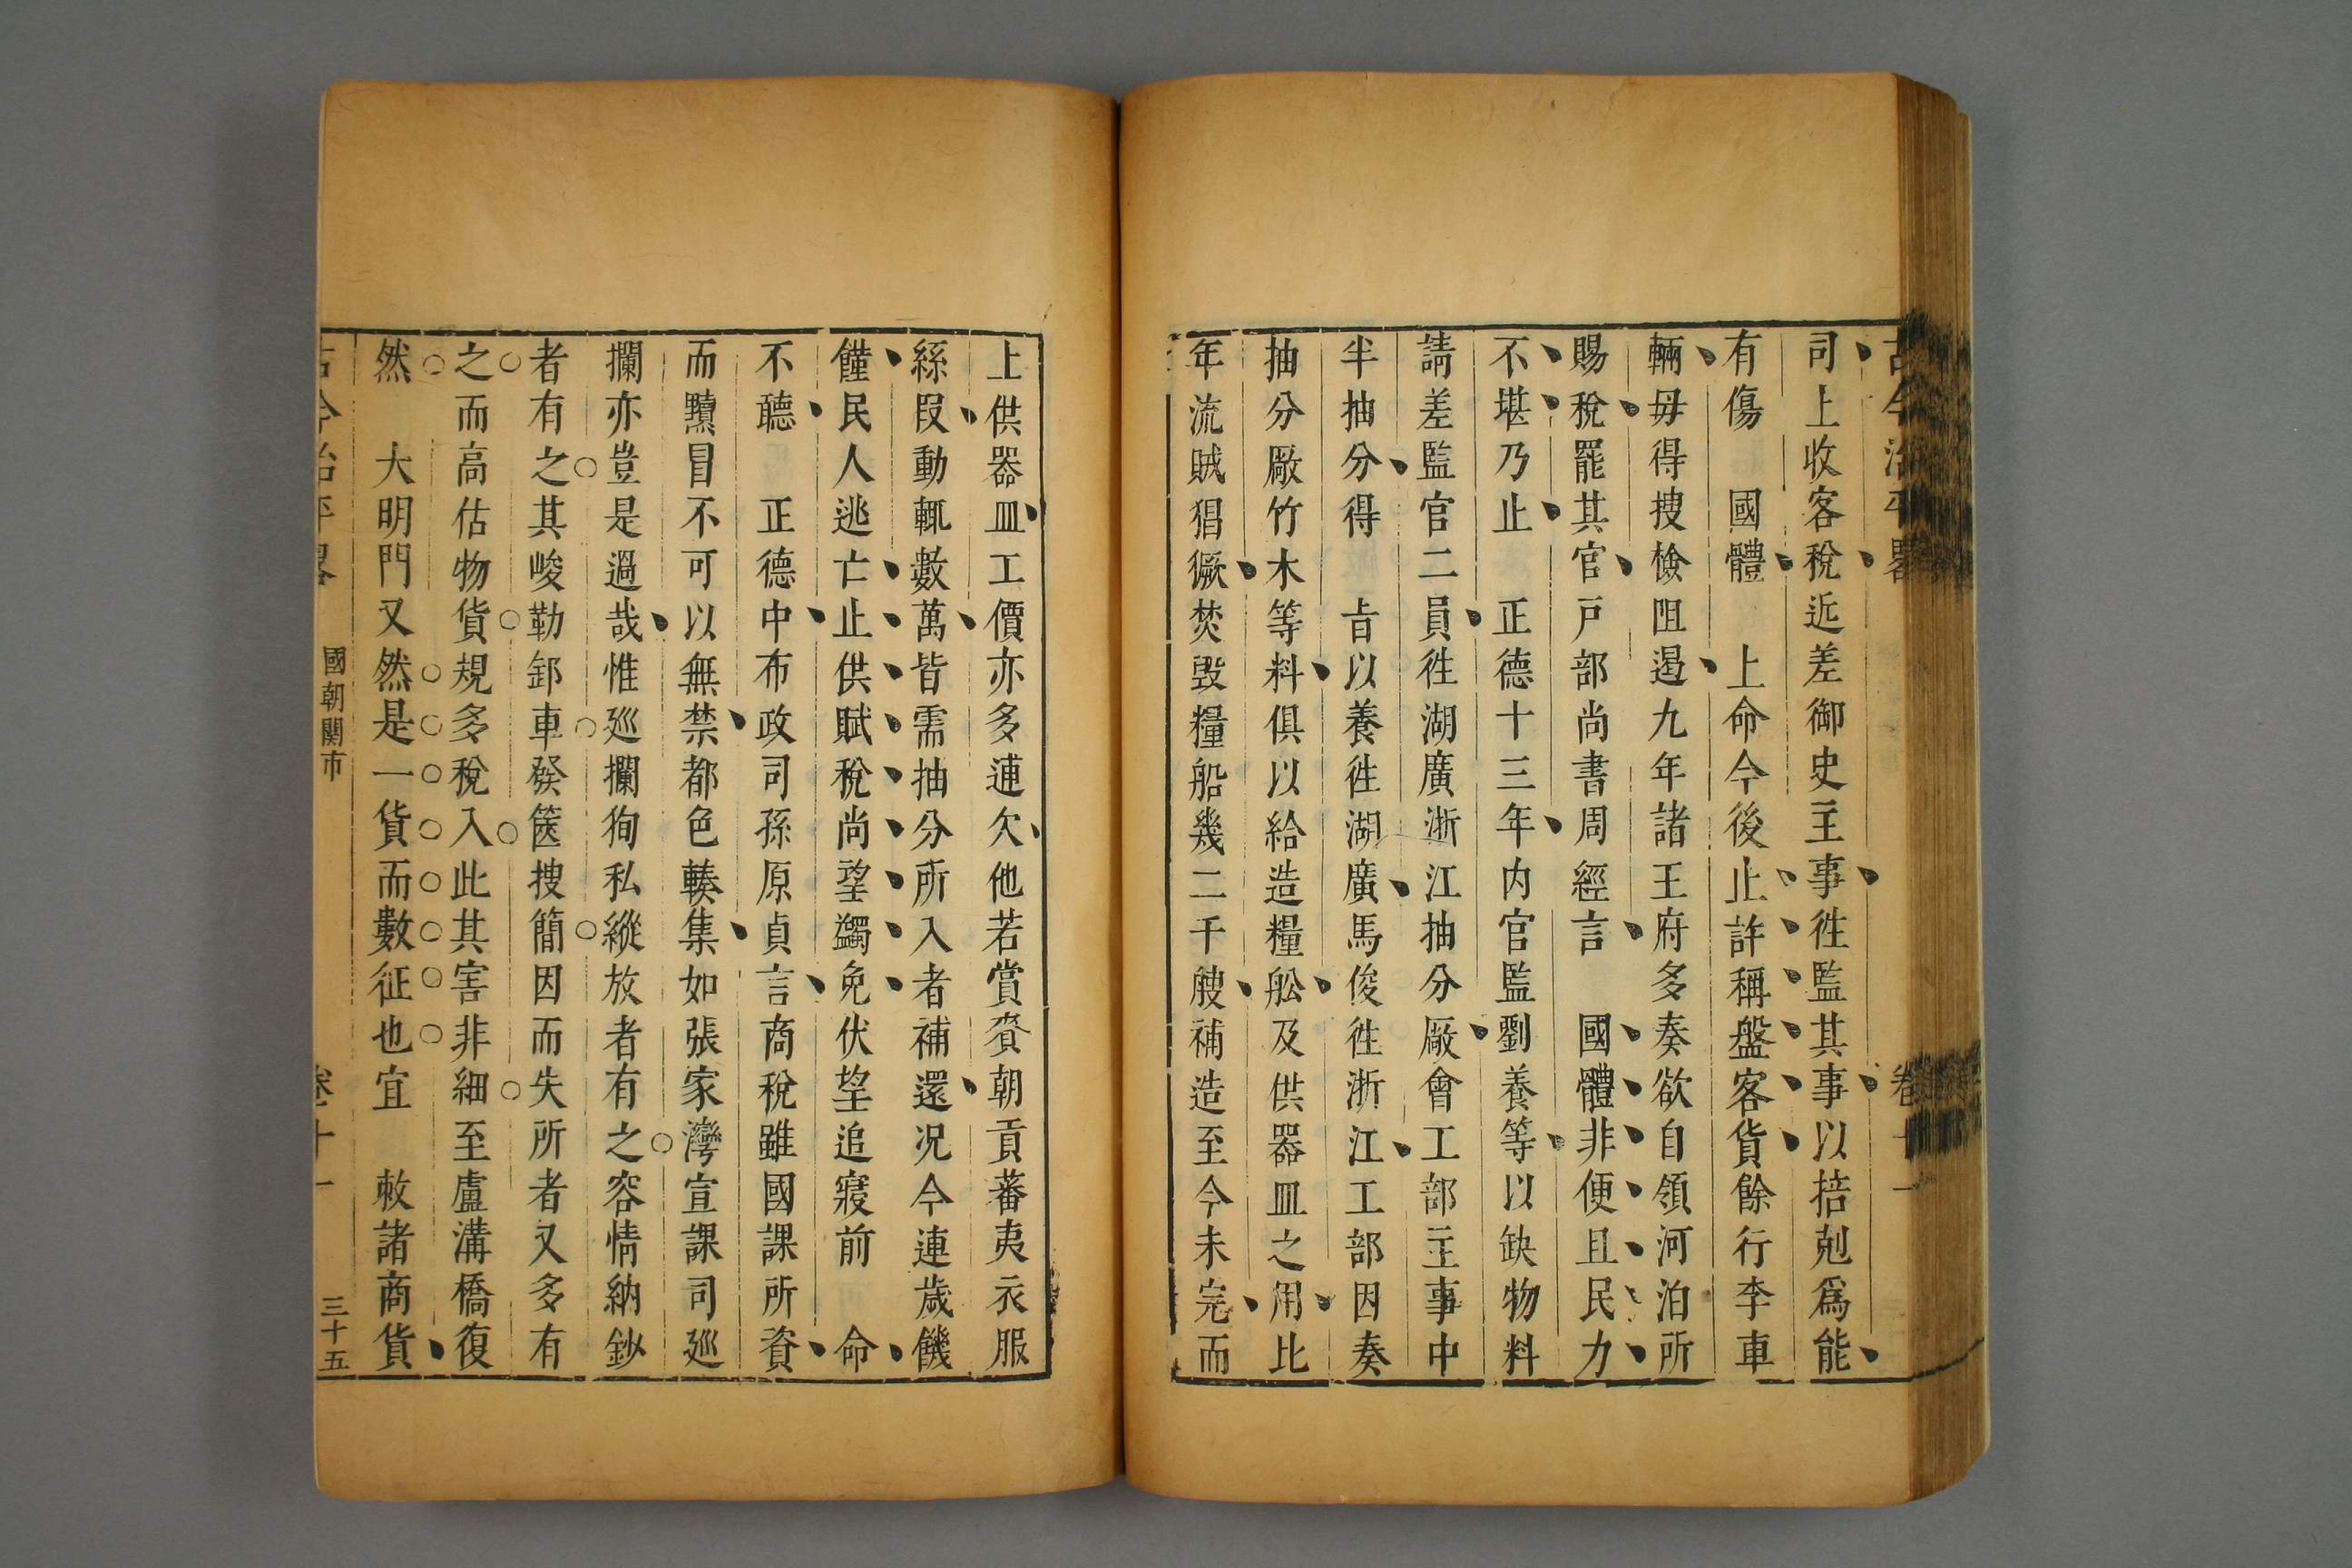 古今治平畧 卷十一
司上收客稅近差御史主事徃監其事以掊剋爲能
有傷 國體 上命今後止許稱盤客貨餘行李車
輛毋得搜檢阻遏九年諸王府多奏欲自領河泊所
賜稅罷其官戸部尚書周經言 國體非便且民力
不堪乃止 正德十三年内官監劉養等以缺物料
請差監官二員徃湖廣浙江抽分厰會工部主事中
半抽分得 㫖以養徃湖廣馬俊徃浙江工部因奏
抽分厰竹木等料俱以給造糧舩及供器皿之用比
年流賊猖獗焚毁糧船幾二千艘補造至今未完而
上供器皿工價亦多逋欠他若賞賚朝貢蕃夷衣服
絲段動輒數萬皆需抽分所入者補還况今連歲饑
饉民人逃亡止供賦稅尚望蠲免伏望追寢前 命
不聽 正德中布政司孫原貞言商稅雖國課所資
而黷冒不可以無禁都邑輳集如張家灣宣課司廵
攔亦豈是過哉惟廵攔狥私縱放者有之容情納鈔
者有之其峻勒卸車發篋搜簡因而失所者又多有
之而高估物貨規多稅入此其害非細至盧溝橋復
然 大明門又然是一貨而數征也宜 敕諸商貨
古今治平畧 國朝關市 卷十一 三十五